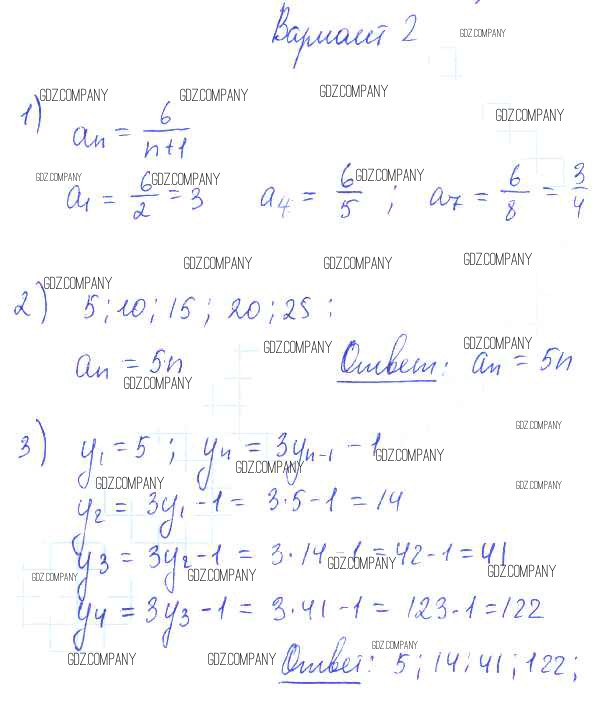 Вариант 2 GDZ.COMPANY
GDZ.COMPANY GDZ.COMPANY GDZ.COMPANY GDZ.COMPANY
1) aₙ = 6/(n+1)
GDZ.COMPANY GDZ.COMPANY GDZ.COMPANY
a₁ = 6/2 = 3 a₄ = 6/5 ; a₇ = 6/8 = 3/4
GDZ.COMPANY GDZ.COMPANY GDZ.COMPANY GDZ.COMPANY
2) 5; 10; 15; 20; 25 :
GDZ.COMPANY GDZ.COMPANY
aₙ = 5n Ответ: aₙ = 5n
GDZ.COMPANY
GDZ.COMPANY
3) y₁ = 5 ; yₙ = 3yₙ₋₁ - 1
GDZ.COMPANY GDZ.COMPANY
GDZ.COMPANY GDZ.COMPANY
y₂ = 3y₁ - 1 = 3·5 - 1 = 14
y₃ = 3y₂ - 1 = 3·14 - 1 = 42 - 1 = 41
GDZ.COMPANY GDZ.COMPANY GDZ.COMPANY GDZ.COMPANY
y₄ = 3y₃ - 1 = 3·41 - 1 = 123 - 1 = 122
GDZ.COMPANY GDZ.COMPANY GDZ.COMPANY
Ответ: 5; 14; 41; 122;